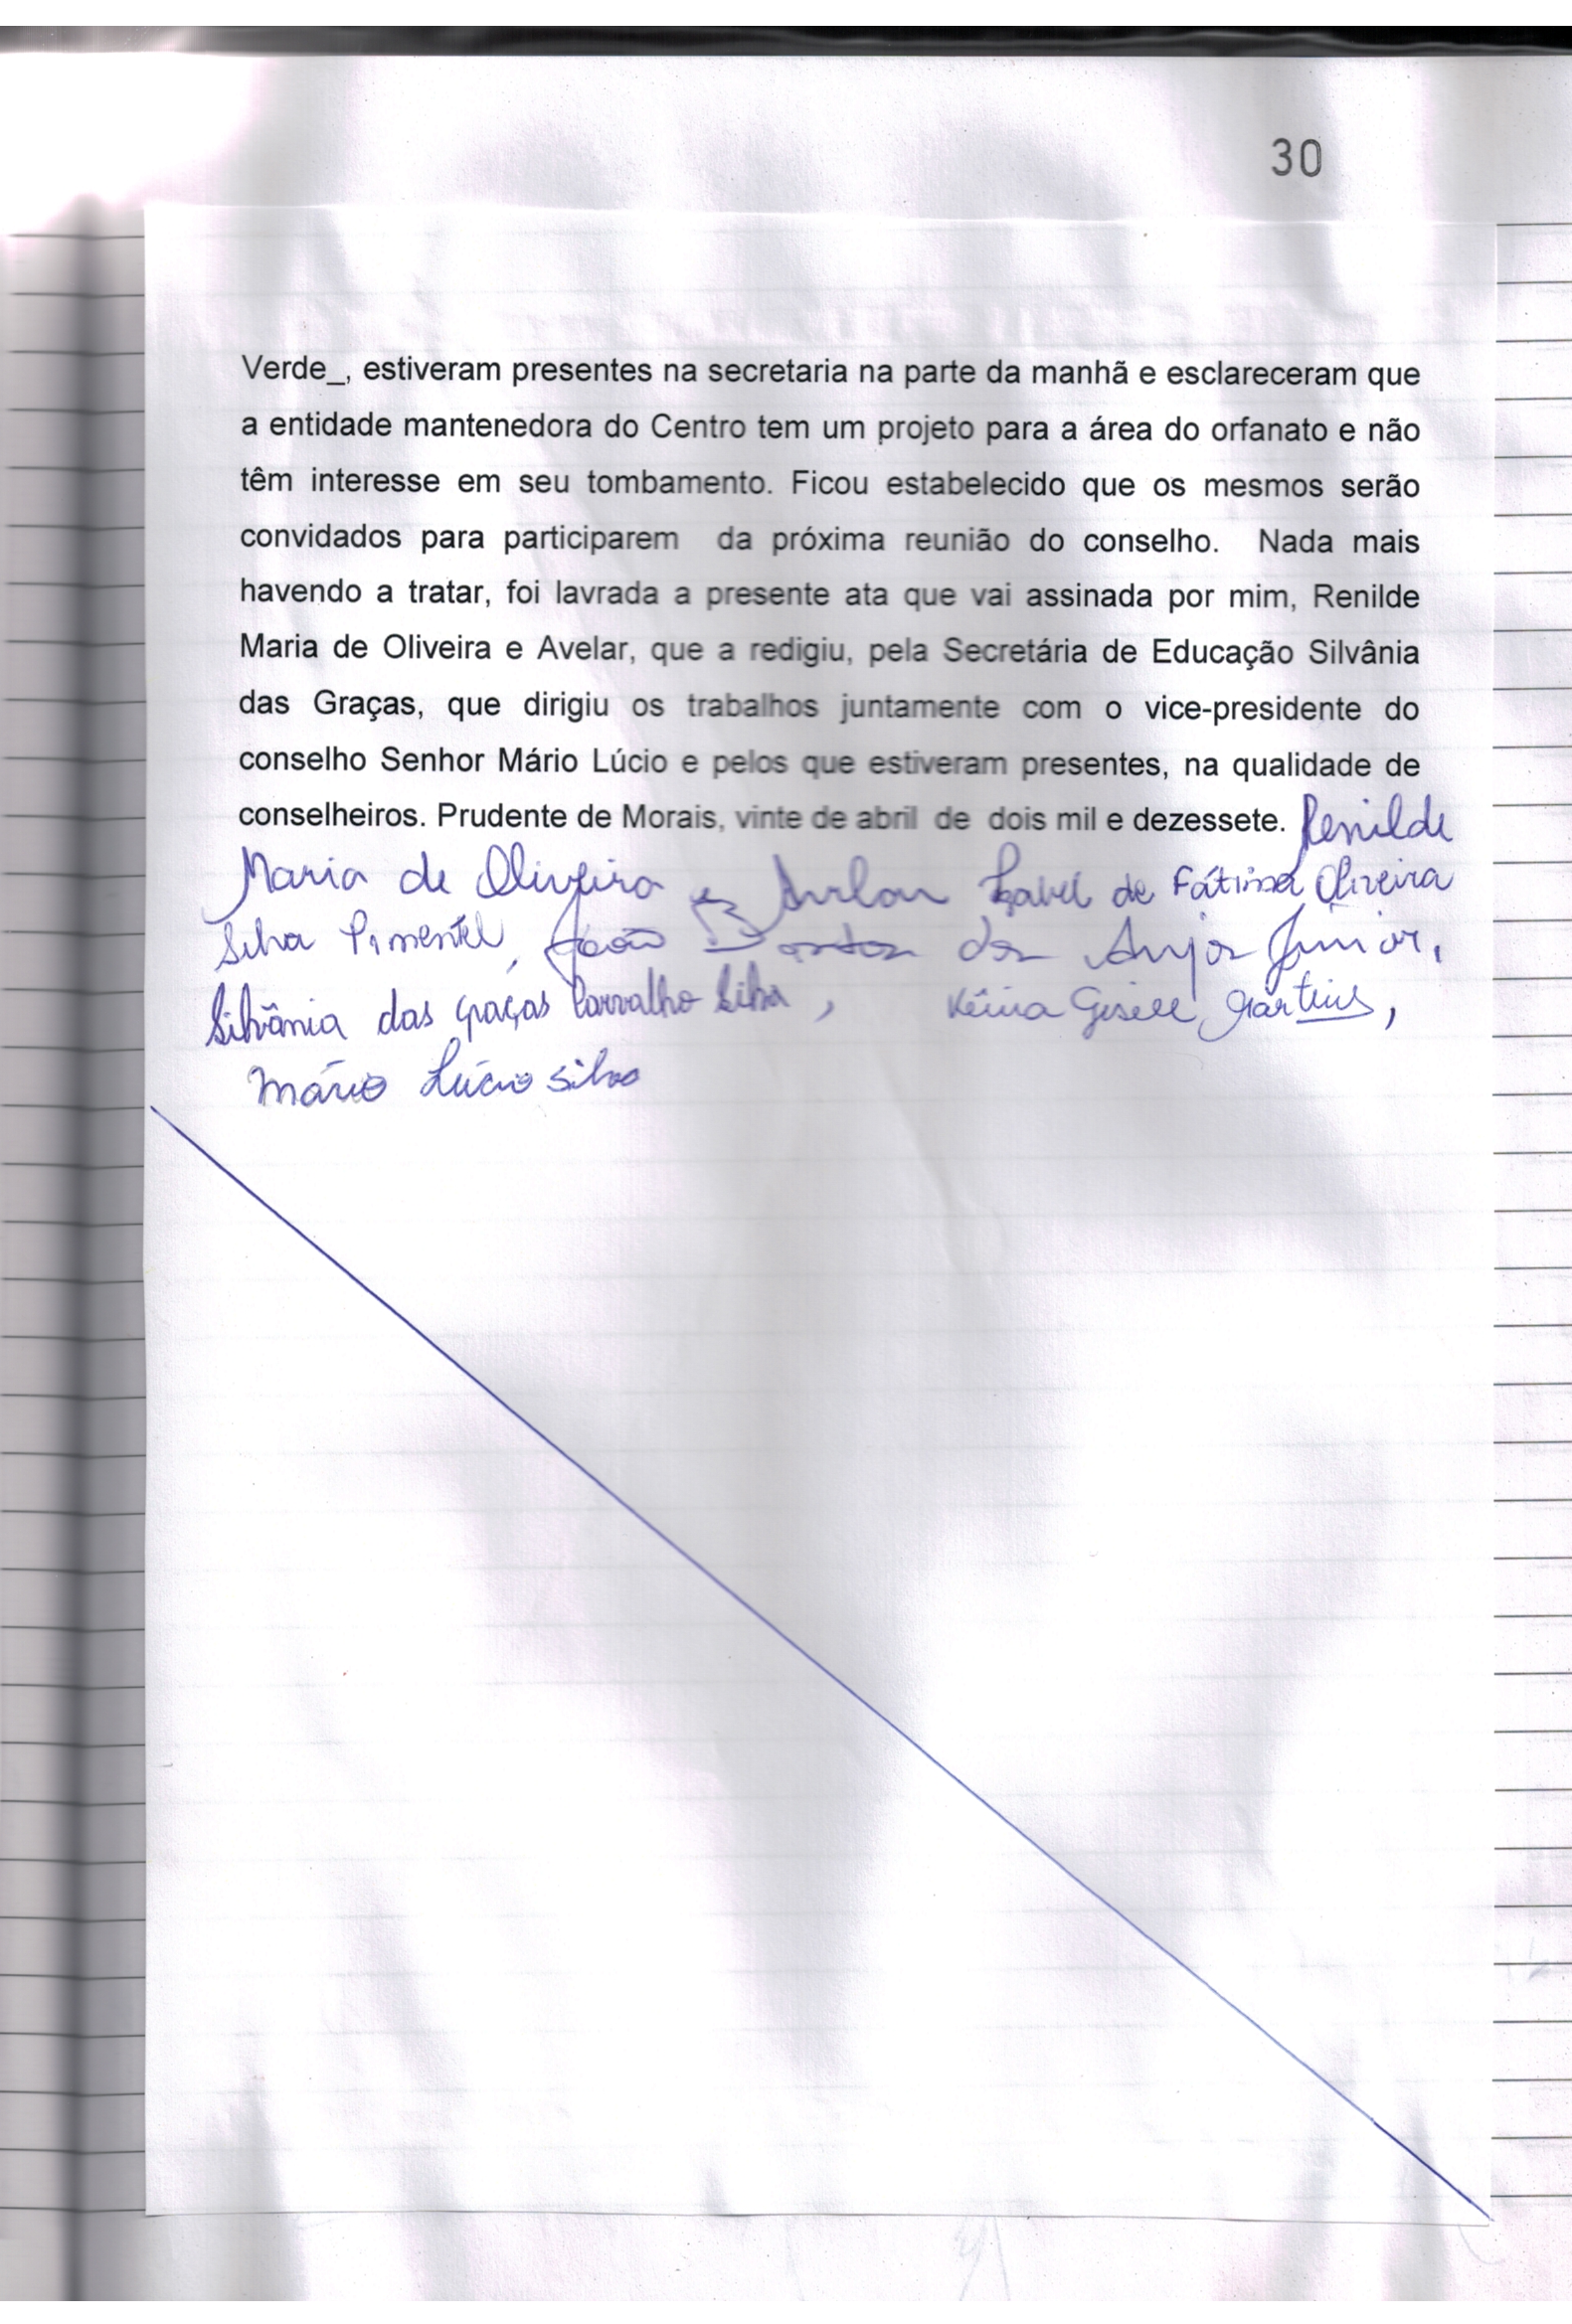 30
Verde_, estiveram presentes na secretaria na parte da manhã e esclareceram que
a entidade mantenedora do Centro tem um projeto para a área do orfanato e não
têm interesse em seu tombamento. Ficou estabelecido que os mesmos serão
convidados para participarem da próxima reunião do conselho. Nada mais
havendo a tratar, foi lavrada a presente ata que vai assinada por mim, Renilde
Maria de Oliveira e Avelar, que a redigiu, pela Secretária de Educação Silvânia
das Graças, que dirigiu os trabalhos juntamente com o vice-presidente do
conselho Senhor Mário Lúcio e pelos que estiveram presentes, na qualidade de
conselheiros. Prudente de Morais, vinte de abril de dois mil e dezessete. Renilde
Maria de Oliveira e Avelar Izabel de Fátima Oliveira
Silva Pimentel, João dos Anjos Júnior,
Silvânia das Graças Carvalho Silva, Gisele Martins,
Mário Lúcio Silva